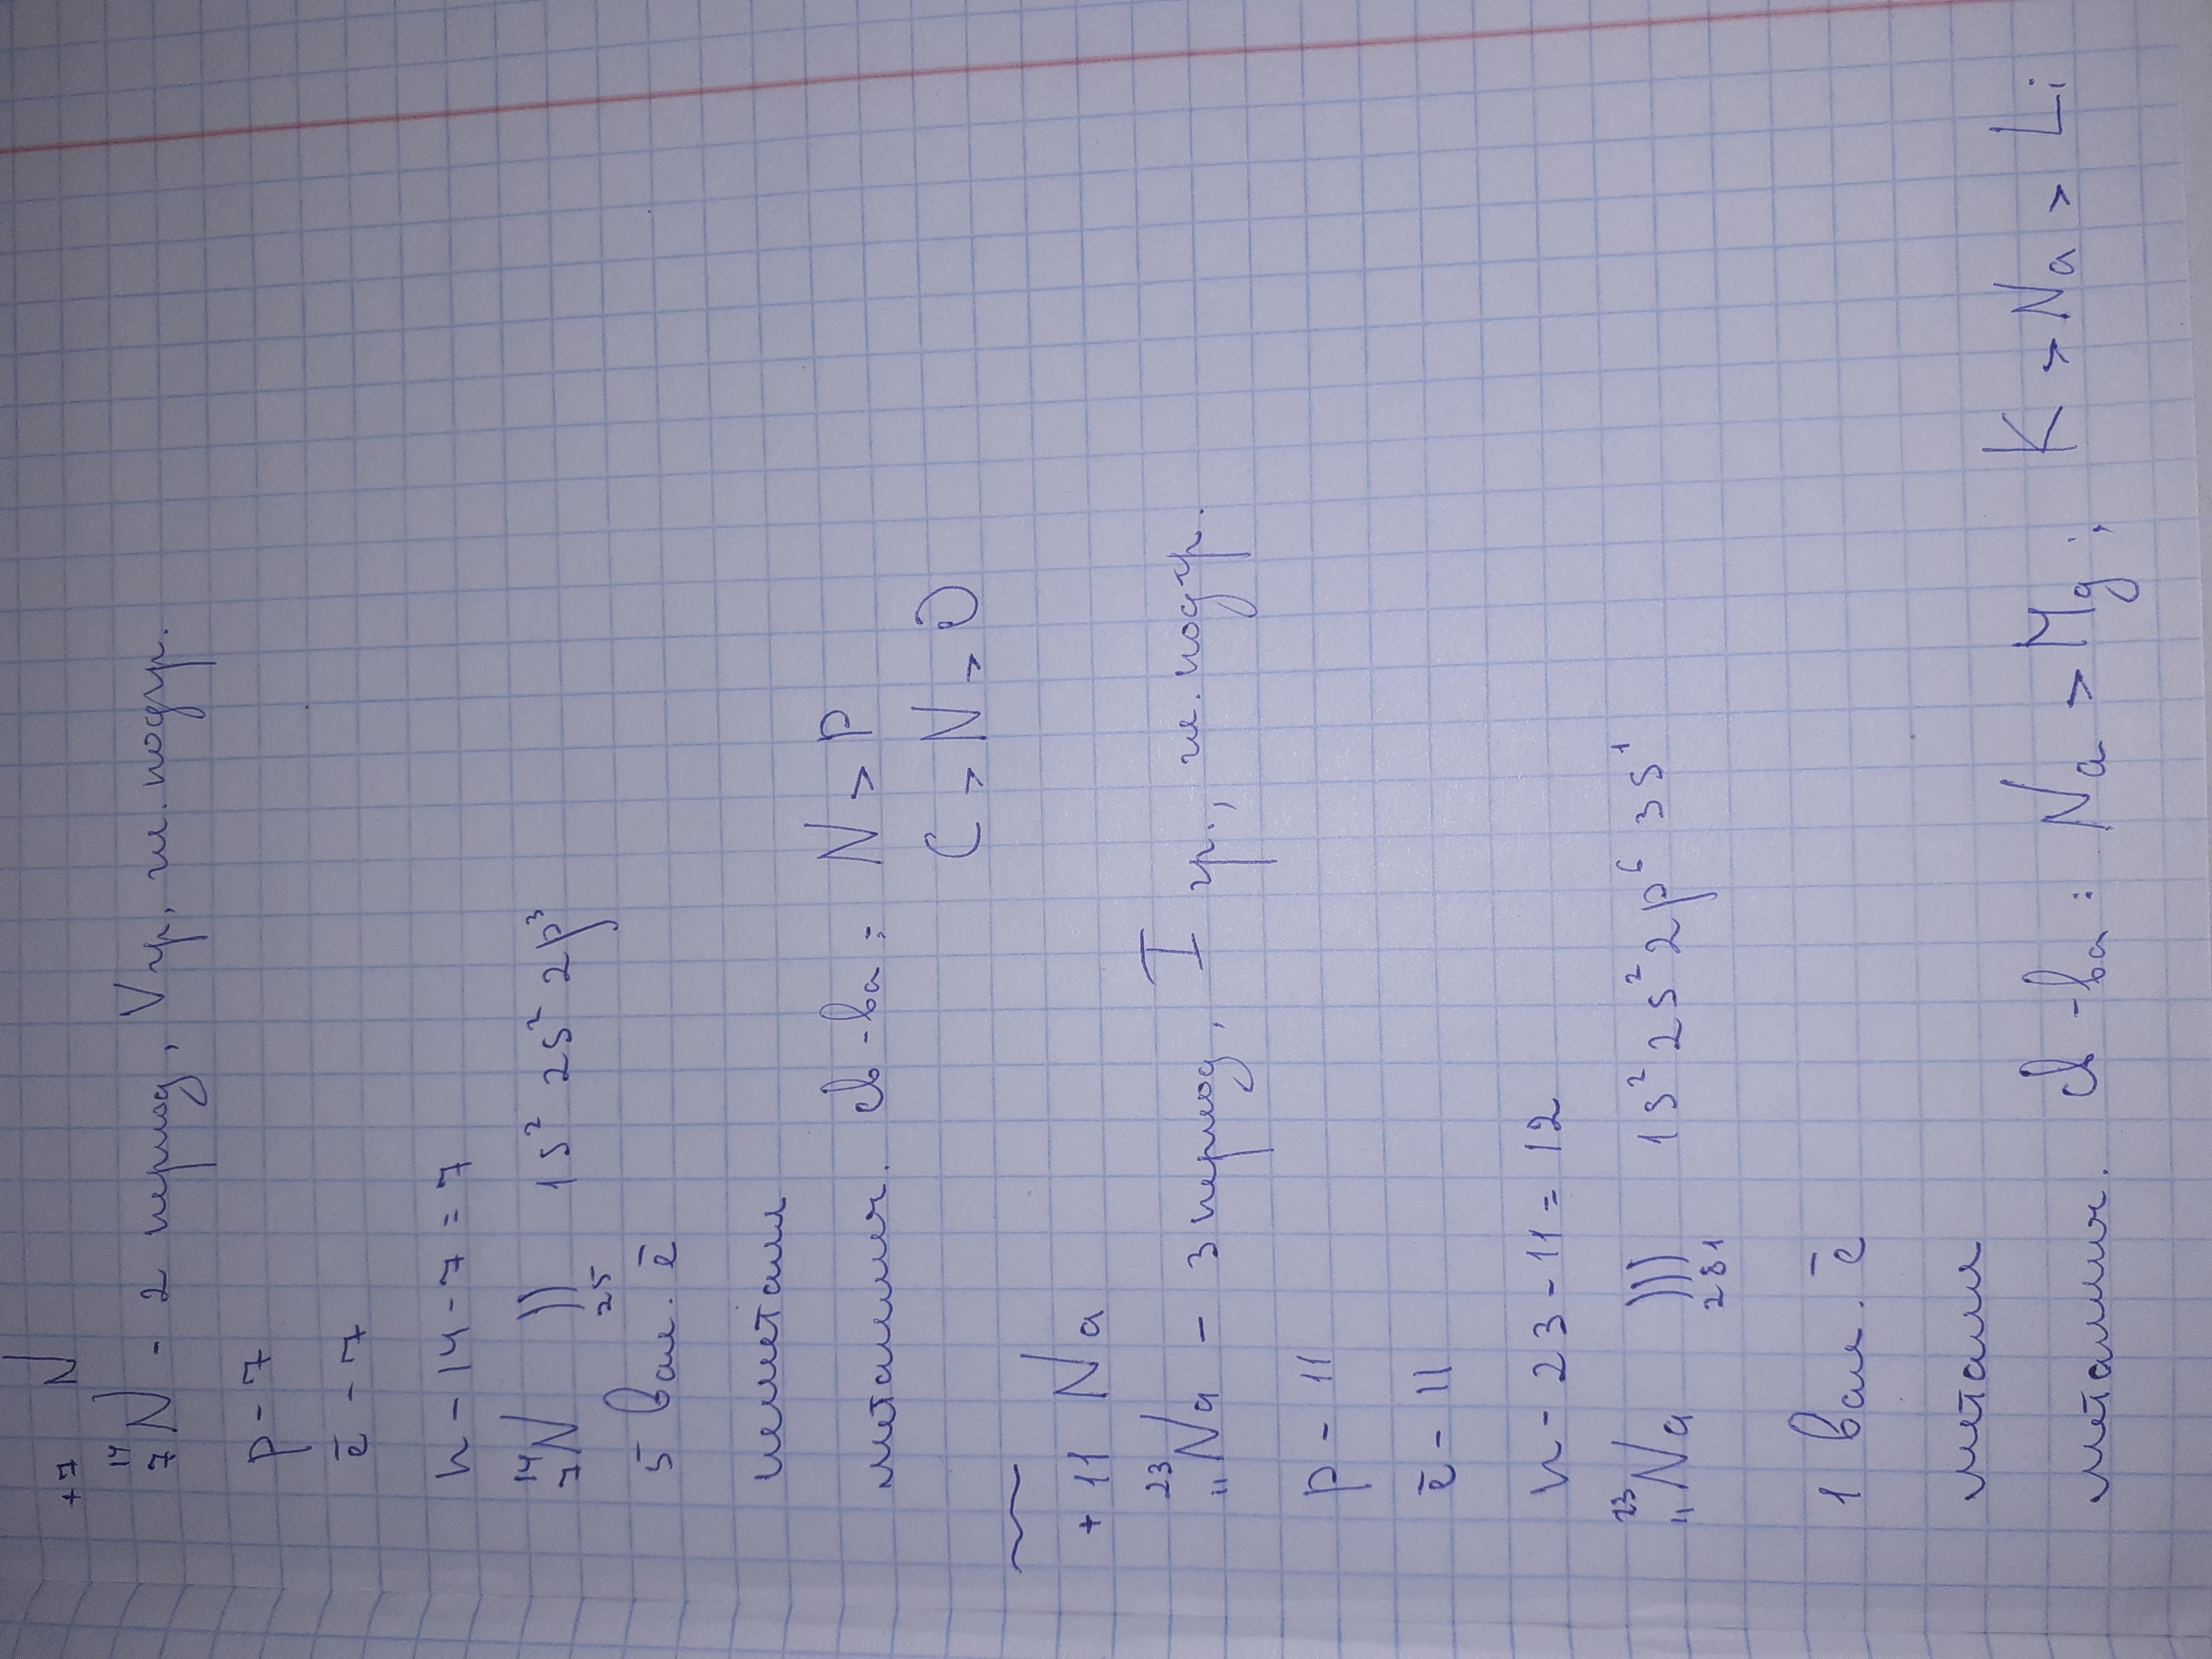 +7 N
¹⁴₇N - 2 период, V гр, гл. подгр.
p - 7
ē - 7
n - 14 - 7 = 7
¹⁴₇N )) 1s² 2s² 2p³
2 5
5 вал. ē
неметалл
металлич. св-ва: N > P
C > N > O
+ 11 Na
²³₁₁Na - 3 период, I гр., гл. подгр.
p - 11
ē - 11
n - 23 - 11 = 12
²³₁₁Na ))) 1s² 2s² 2p⁶ 3s¹
2 8 1
1 вал. ē
металл
металлич. св-ва: Na > Mg; K > Na > Li